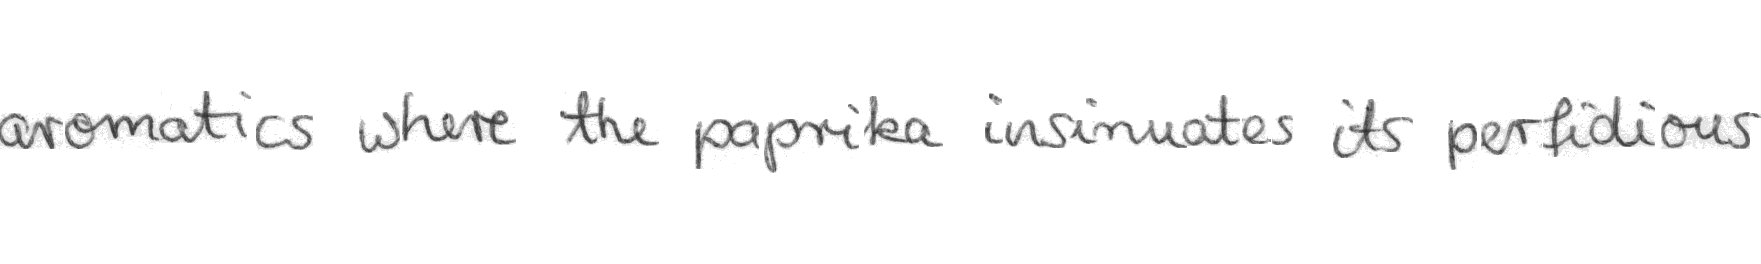 aromatics where the paprika insinuates its perfidious